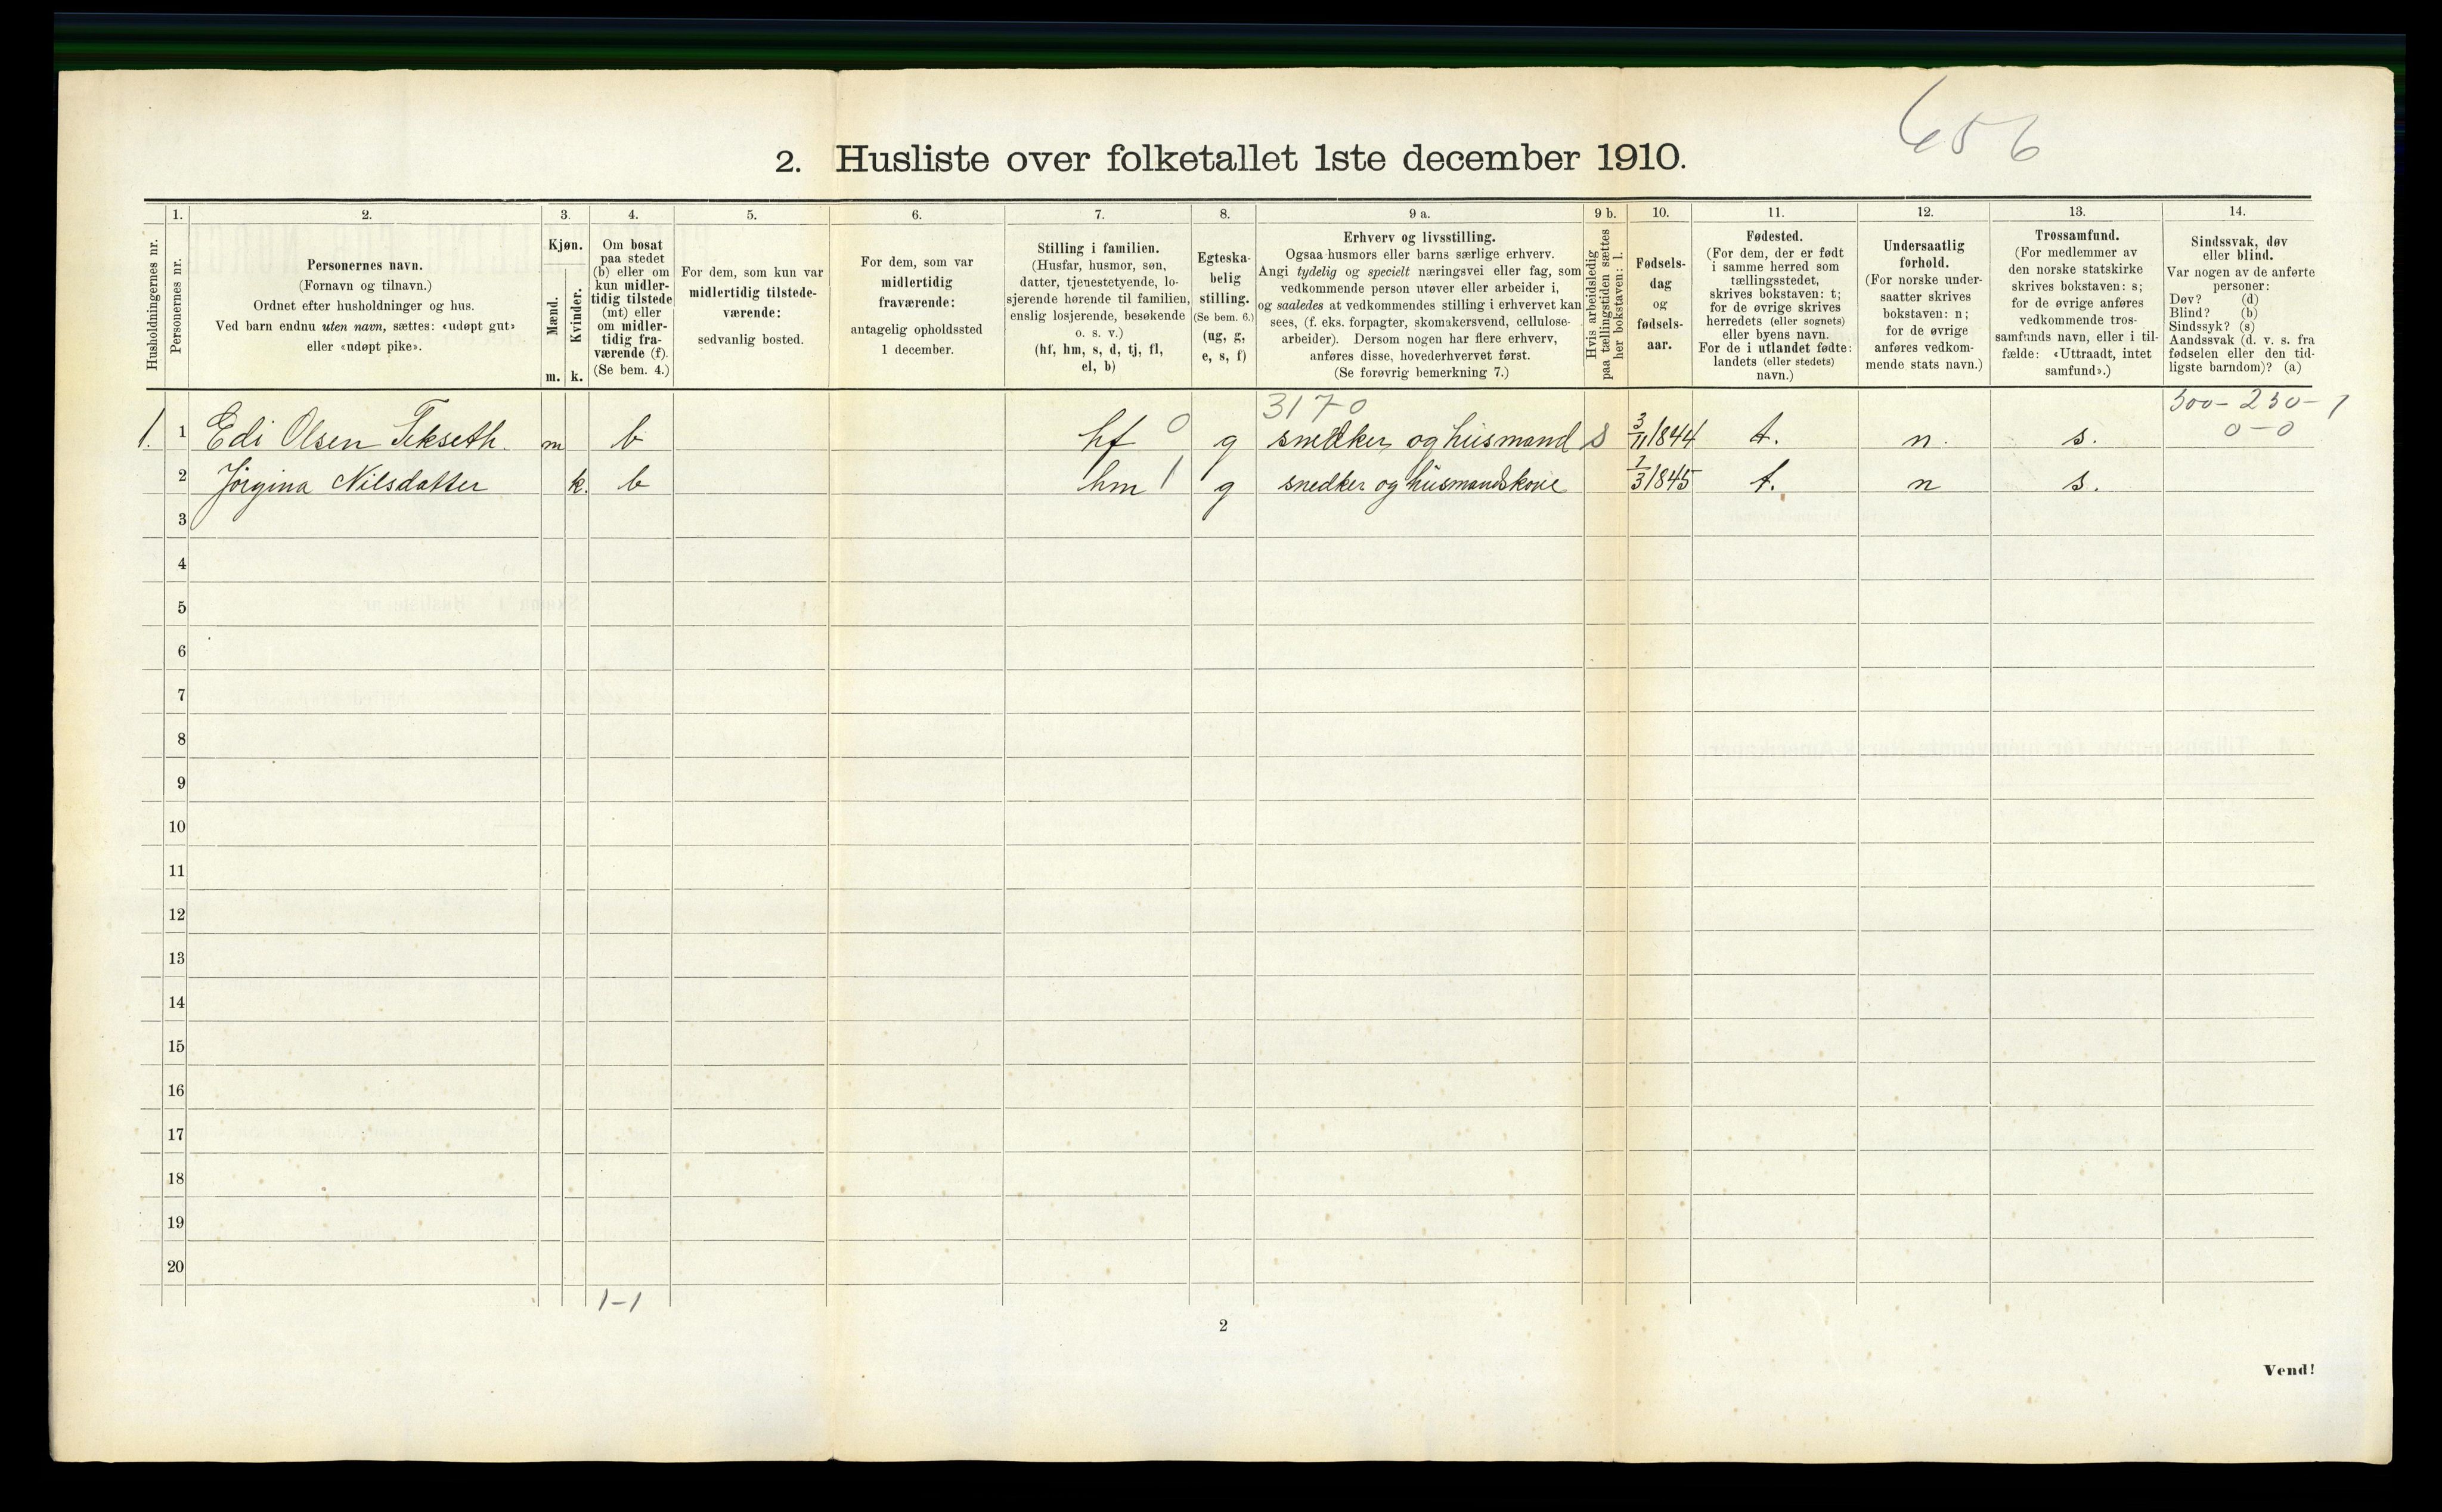 656
2. Husliste over folketallet 1ste december 1910.
Husholdningernes nr.
1.
Personernes nr.
2.
Personernes navn.
(Fornavn og tilnavn.)
Ordnet efter husholdninger og hus.
Ved barn endnu uten navn, sættes: «udøpt gut»
eller «udøpt pike».
3.
Kjøn.
Mænd.
Kvinder.
m. k.
4.
Om bosat
paa stedet
(b) eller om
kun midler-
tidig tilstede
(mt) eller
om midler-
tidig fra-
værende (f).
(Se bem. 4.)
5.
For dem, som kun var
midlertidig tilstede-
værende:
sedvanlig bosted.
6.
For dem, som var
midlertidig
fraværende:
antagelig opholdssted
1 december.
7.
Stilling i familien.
(Husfar, husmor, søn,
datter, tjenestetyende, lo-
sjerende hørende til familien,
enslig losjerende, besøkende
o. s. v.)
(hf, hm, s, d, tj, fl,
el, b)
8.
Egteska-
belig
stilling.
(Se bem. 6.)
(ug, g,
e, s, f)
9 a.
Erhverv og livsstilling.
Ogsaa husmors eller barns særlige erhverv.
Angi tydelig og specielt næringsvei eller fag, som
vedkommende person utøver eller arbeider i,
og saaledes at vedkommendes stilling i erhvervet kan
sees, (f. eks. forpagter, skomakersvend, cellulose-
arbeider). Dersom nogen har flere erhverv,
anføres disse, hovederhvervet først.
(Se forøvrig bemerkning 7.)
9 b.
Hvis arbeidsledig
paa tællingstiden sættes
her bokstaven: l.
10.
Fødsels-
dag
og
fødsels-
aar.
11.
Fødested.
(For dem, der er født
i samme herred som
tællingsstedet,
skrives bokstaven: t;
for de øvrige skrives
herredets (eller sognets)
eller byens navn.
For de i utlandet fødte:
landets (eller stedets)
navn.)
12.
Undersaatlig
forhold.
(For norske under-
saatter skrives
bokstaven: n;
for de øvrige
anføres vedkom-
mende stats navn.)
13.
Trossamfund.
(For medlemmer av
den norske statskirke
skrives bokstaven: s;
for de øvrige anføres
vedkommende tros-
samfunds navn, eller i til-
fælde: «Uttraadt, intet
samfund».)
14.
Sindssvak, døv
eller blind.
Var nogen av de anførte
personer:
Døv? (d)
Blind? (b)
Sindssyk? (s)
Aandssvak (d. v. s. fra
fødselen eller den tid-
ligste barndom)? (a)
3170 500-250-1
1. 1 Edi Olsen Tekseth. m b hf 0 g snedker og husmand S 3/11 1844 t. n. s. 0-0
2 Jörgina Nilsdatter k. b hm 1 g snedker og husmandskone 1/3 1845 t. n s.
3
4
5
6
7
8
9
10
11
12
13
14
15
16
17
18
19
20
1-1
2
Vend!